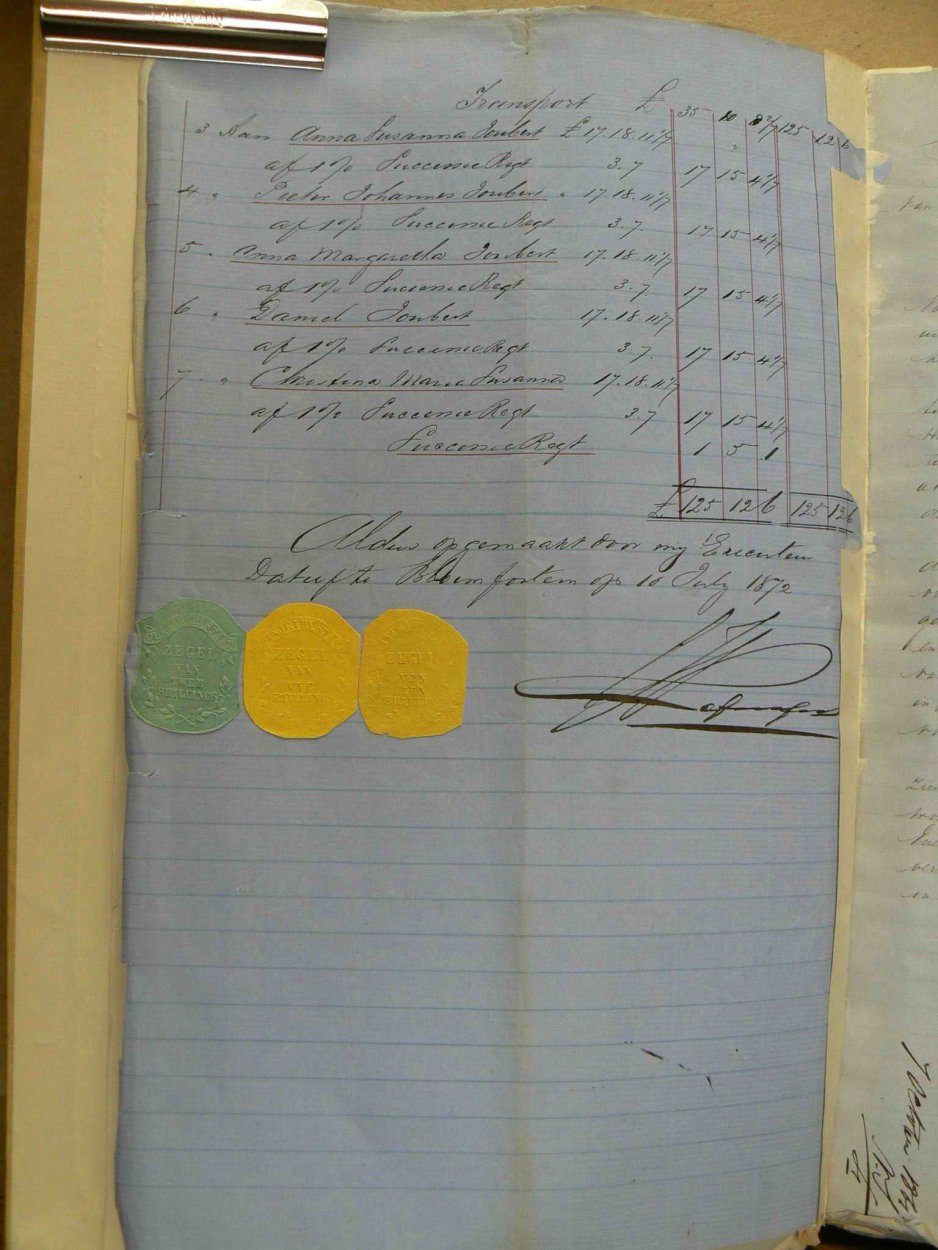 TAIWAN
Transport £ 35 10 8 2/7 125 12 6
3 Aan Anna Susanna Joubert £ 17.18.11 4/7
af 1% Successie Regt 3.7 17 15 4 4/7
4 " Pieter Johannes Joubert " 17.18.11 4/7
af 1% Successie Regt 3.7. 17 15 4 4/7
5 " Anna Margaretha Joubert 17.18.11 4/7
af 1% Successie Regt 3.7 17 15 4 4/7
6 " Daniel Joubert 17.18.11 4/7
af 1% Successie Regt 3.7. 17 15 4 4/7
7 " Christina Maria Susanna 17.18.11 4/7
af 1% Successie Regt 3.7 17 15 4 4/7
Successie Regt 1 5 1
£ 125 12 6 125 12 6
Aldus opgemaakt door my Executeur
Datief te Bloemfontein op 10 July 1872
ZEGEL VAN TWEE SHILLINGS
ZEGEL VAN SHILLINGS
ZEGEL VAN EEN SHILLING